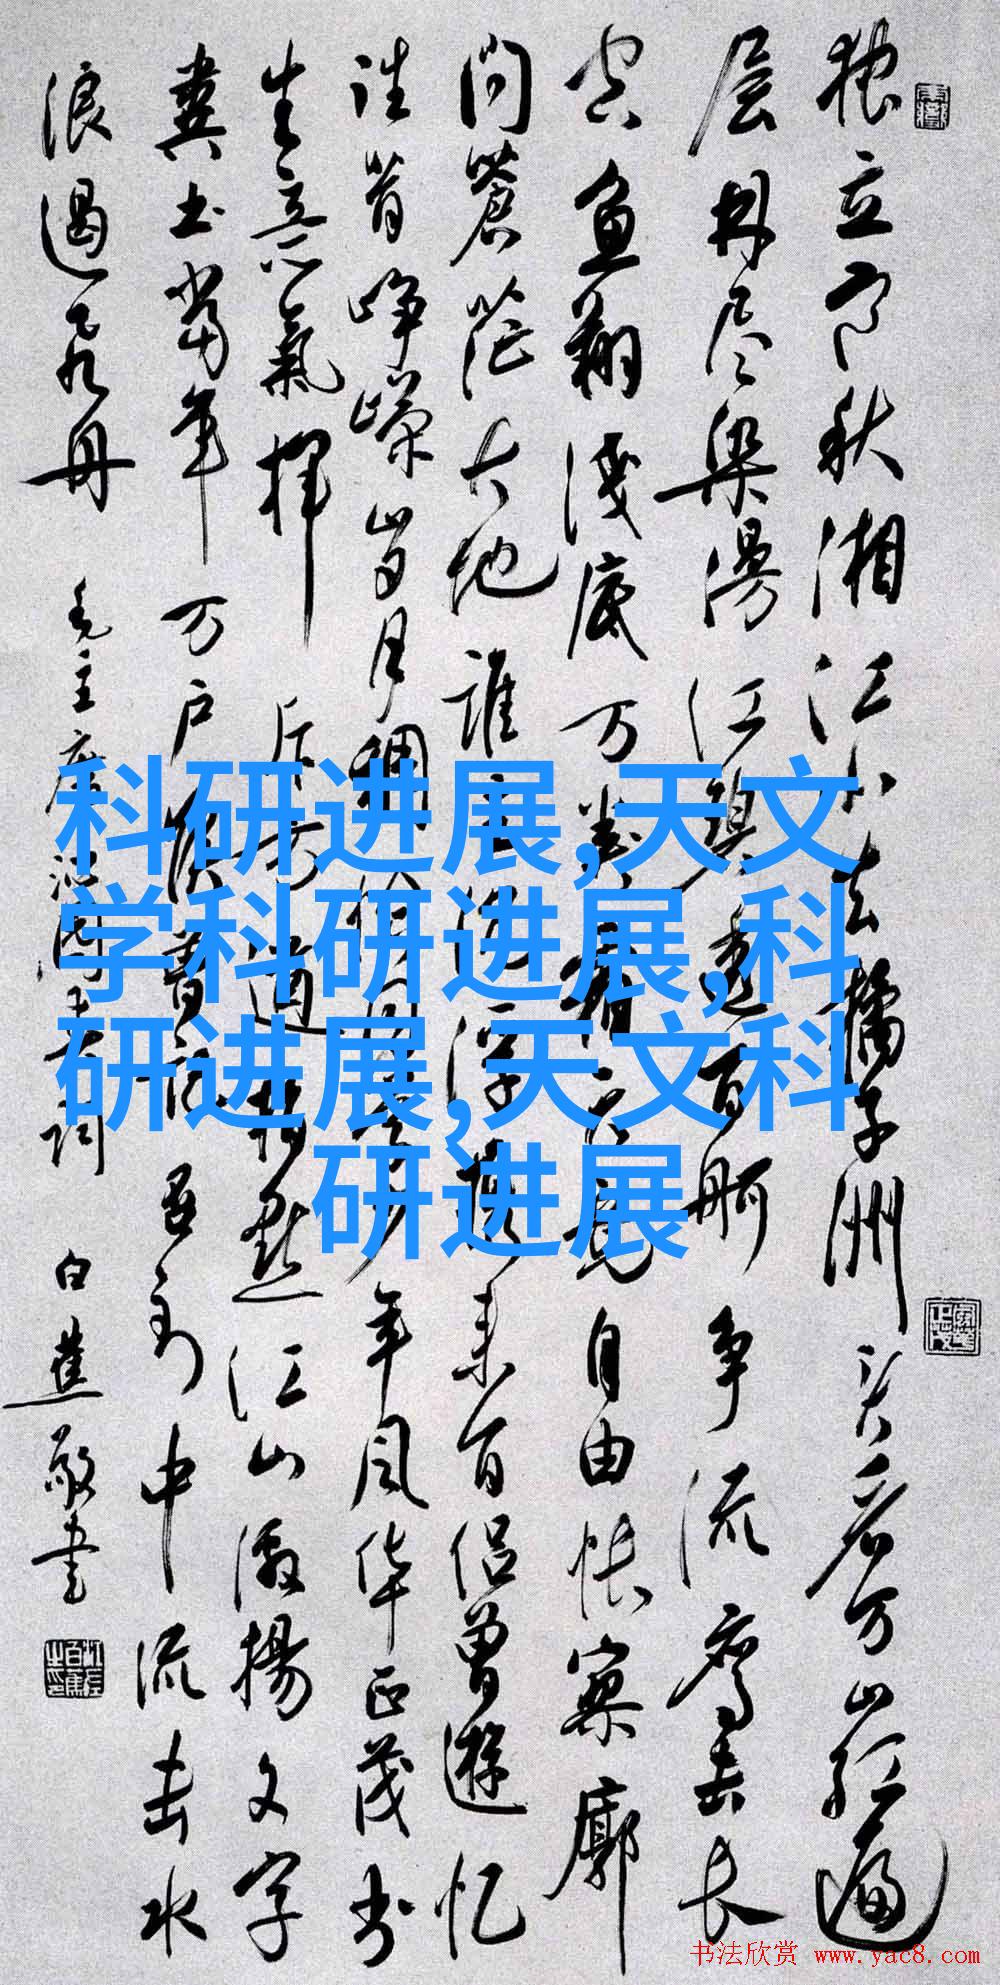 独立寒秋湘江北去橘子洲头看万山红遍
层林尽染漫江碧透百舸争流鹰击长
空鱼翔淺底万类霜天竞自由怅寥廓
问蒼茫大地誰主沉浮携来百侣曾遊忆
往昔峥嵘岁月稠恰同学少年风华正茂书
生意氣挥斥方遒指点江山激揚文字
粪土当年万户侯曾记否到中流击水
浪遏飞舟 毛主席沁园春词 白蕉敬书
科研进展,天文
学科研进展,科
研进展,天文科
研进展
书法欣赏 www.yac8.com